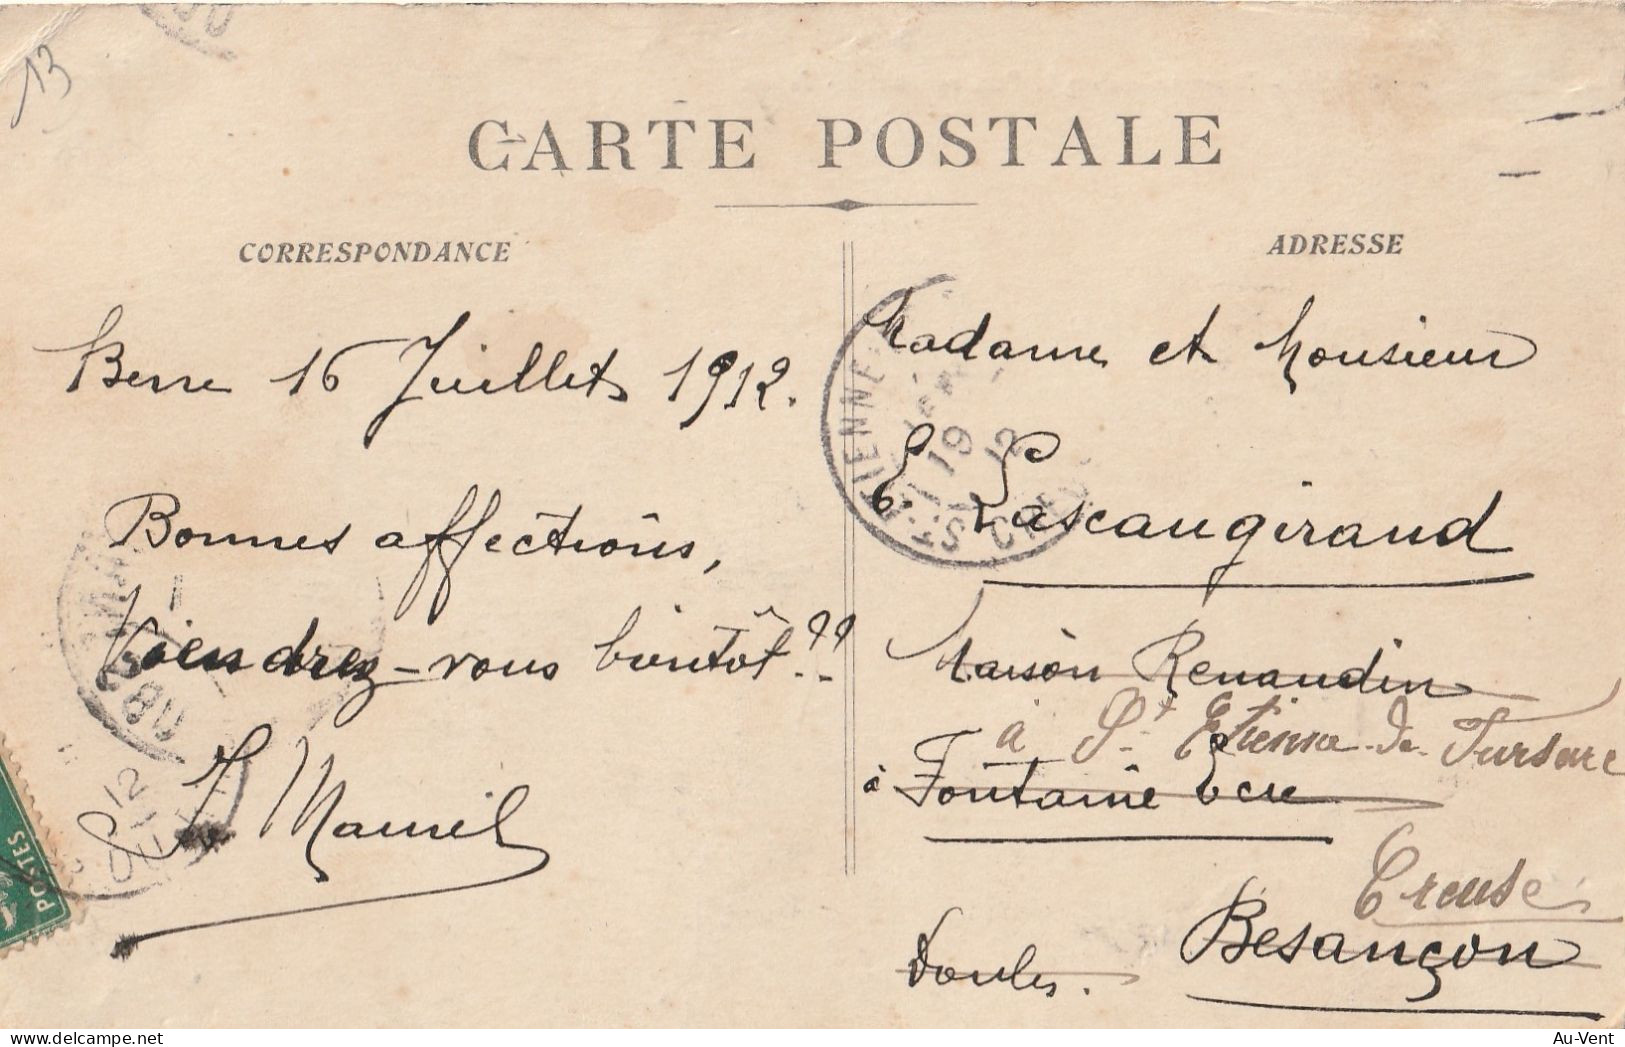 13
CARTE POSTALE
CORRESPONDANCE
ADRESSE
Berre 16 Juillet 1912.
Bonnes affections,
Viendrez-vous bientôt??
Madame et Monsieur
E. Lascaugiraud
Maison Renaudin
à St Etienne de Fursac
à Fontaine Ecu
Creuse
Besançon
Doubs.
POSTES
19
12
Au-Vent